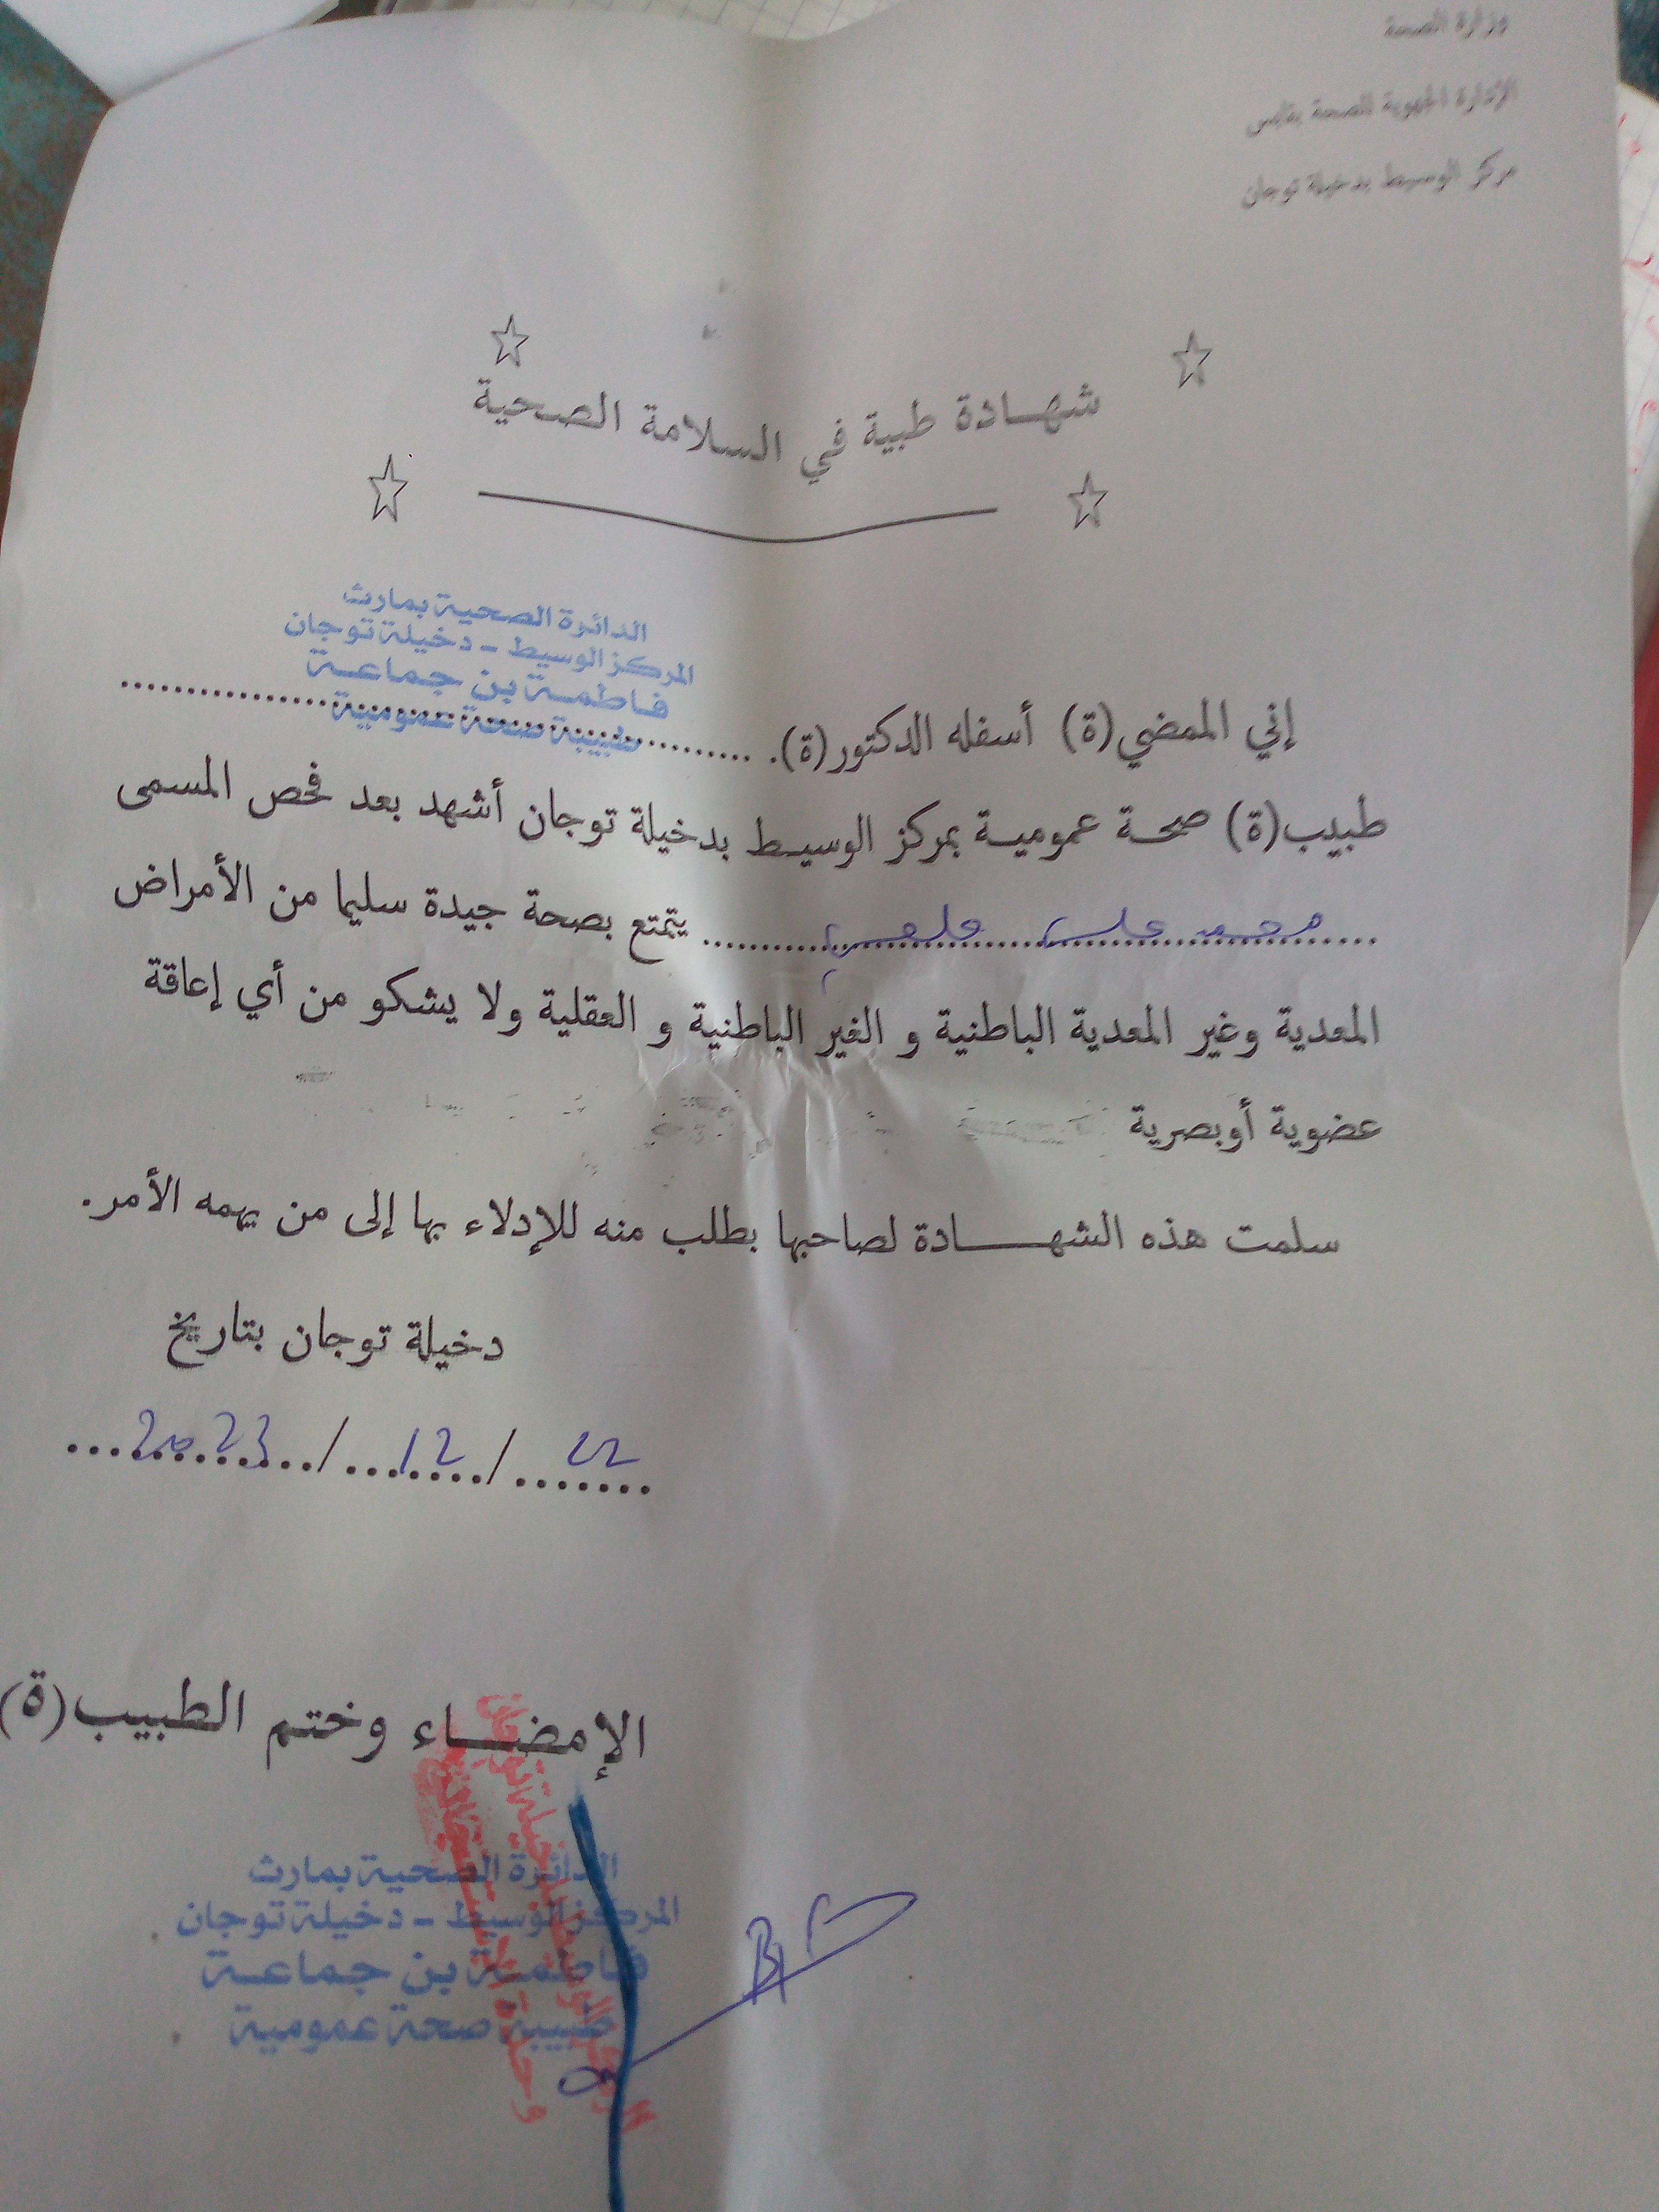 وزارة الصحة
الإدارة الجهوية للصحة بقابس
مركز الوسيط بدخيلة توجان
شهـــادة طبية في السلامة الصحية
الدائرة الصحية بمارث
المركز الوسيط - دخيلة توجان
فاطمة بن جماعة
طبيبة صحة عمومية
إني الممضي (ة) أسفله الدكتور(ة). ........................................
طبيب(ة) صحة عمومية بمركز الوسيط بدخيلة توجان أشهد بعد فحص المسمى
محمد علي ........ يتمتع بصحة جيدة سليما من الأمراض
المعدية وغير المعدية الباطنية و الغير الباطنية و العقلية ولا يشكو من أي إعاقة
عضوية أوبصرية
سلمت هذه الشهـــــادة لصاحبها بطلب منه للإدلاء بها إلى من يهمه الأمر.
دخيلة توجان بتاريخ
22 / 12 / 2023
الإمضـــاء وختم الطبيب(ة)
الدائرة الصحية بمارث
المركز الوسيط - دخيلة توجان
فاطمة بن جماعة
طبيبة صحة عمومية